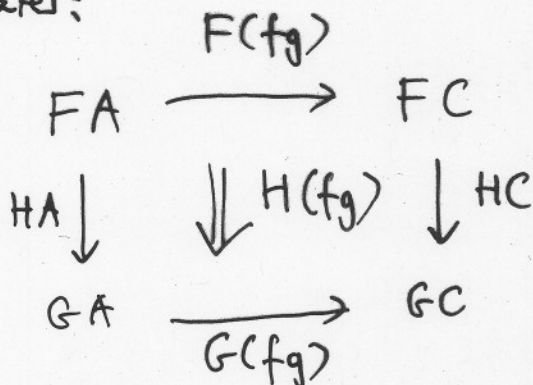 F(fg)
FA FC
HA H(fg) HC
GA GC
G(fg)